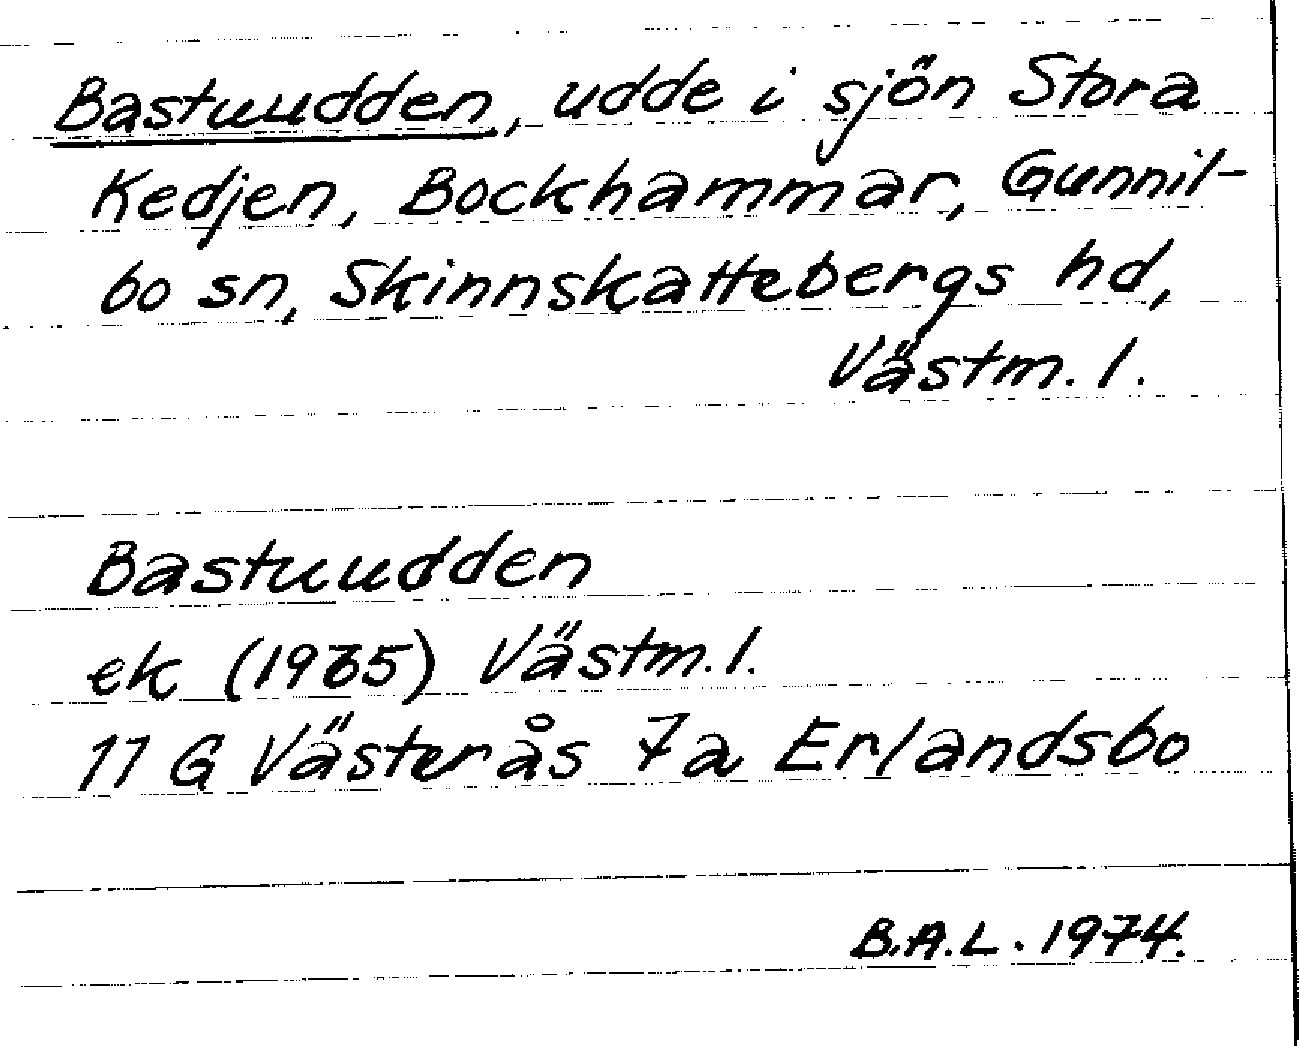 Bastuudden, udde i sjön Stora
Kedjen, Bockhammar, Gunnil-
bo sn, Skinnskattebergs hd,
Västm. l.
Bastuudden
ek (1965) Västm. l.
11 G Västerås 7a Erlandsbo
B.A.L. 1974.